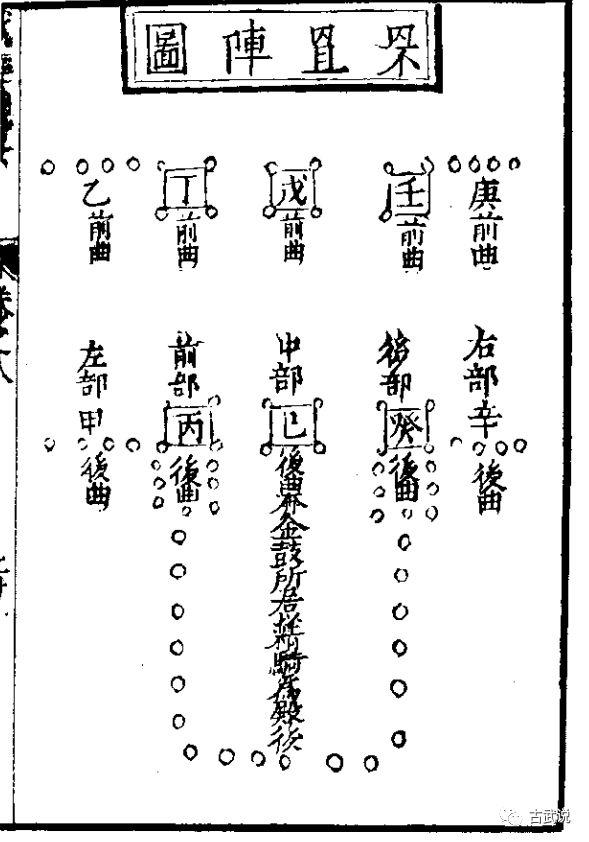 罘罝陣圖
庚前曲
右部辛後曲
壬前曲
後部癸後曲
戊前曲
中部己後曲金鼓所居騎殿後
丁前曲
前部丙後曲
乙前曲
左部甲後曲
卷之八
古武说